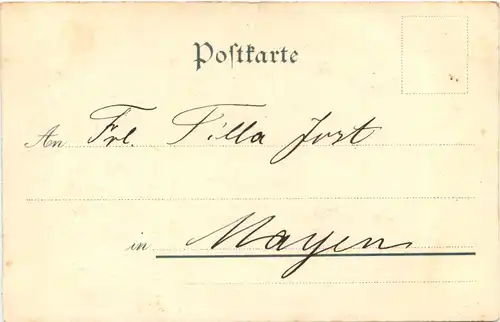 Postkarte
An Frl. Tilla Jost
in Mayen